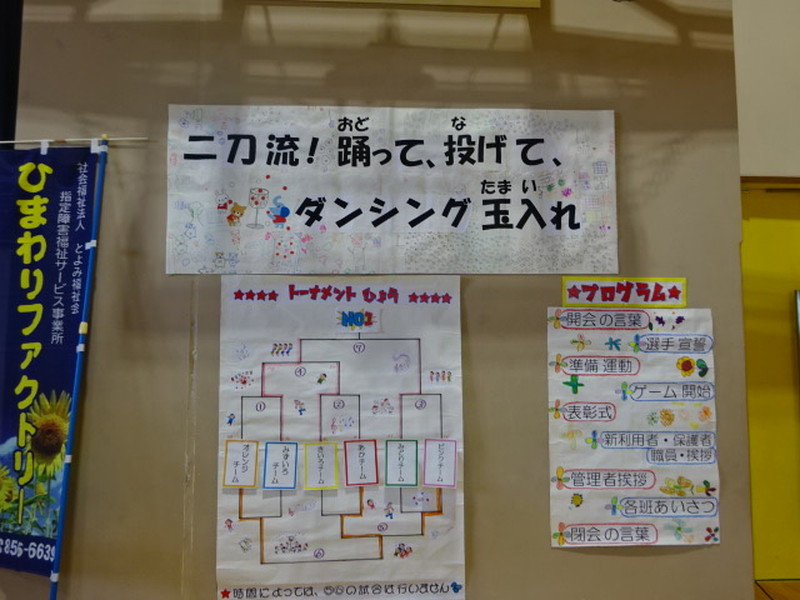 おど
な
二刀流！踊って、投げて、
たまい
ダンシング玉入れ
社会福祉法人 とよみ福祉会
指定障害福祉サービス事業所
ひまわりファクトリー
856-6639
★★★★ トーナメントひょう ★★★★
NO1
⑦
④
①
②
③
オレンジチーム
みずいろチーム
きいろチーム
あかチーム
みどりチーム
ピンクチーム
★時間によっては、
の試合は行いません
★プログラム★
開会の言葉
選手宣誓
準備運動
ゲーム開始
表彰式
新利用者・保護者
職員・挨拶
管理者挨拶
各班あいさつ
閉会の言葉